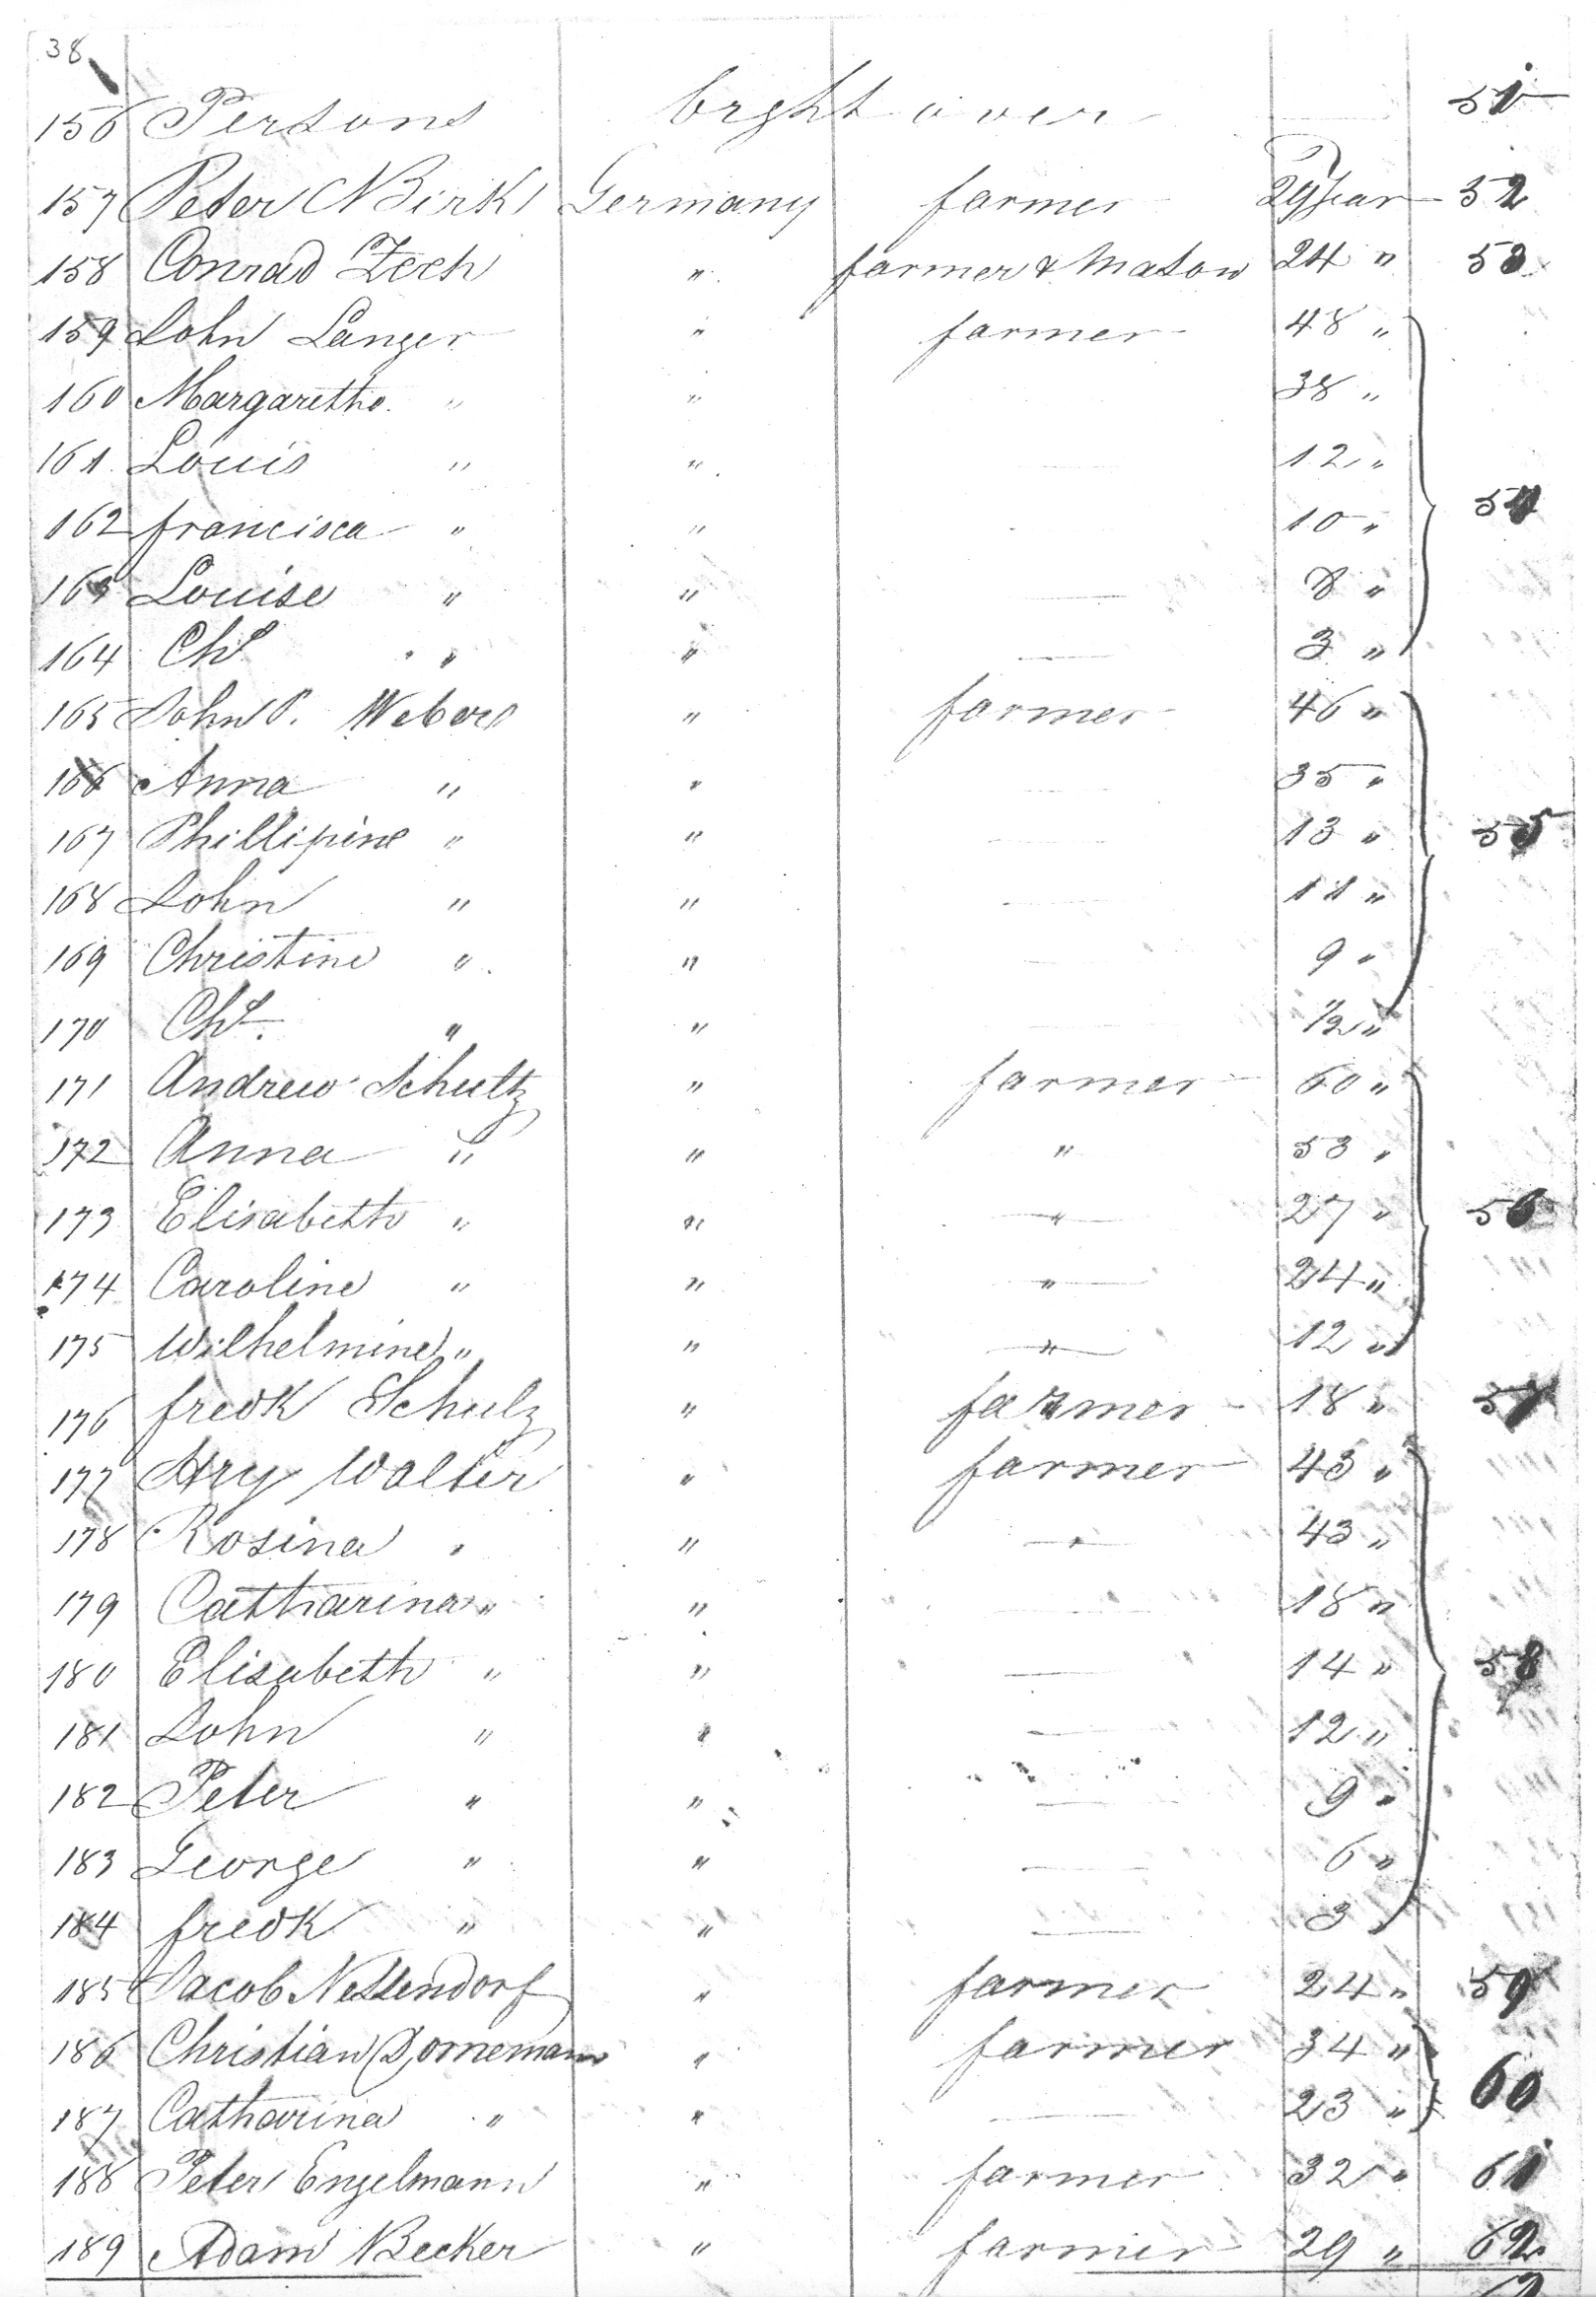 38
156 Persons brght over 51
157 Peter Birk Germany farmer 29 year 52
158 Conrad Zech " farmer & Mason 24 " 53
159 John Langer " farmer 48 "
160 Margarethe " " 38 "
161 Louis " " 12 "
162 francisca " " 10 " 54
163 Louise " " — 8 "
164 Chs " " — 3 "
165 John P. Weber " farmer 46 "
166 Anna " " — 35 "
167 Phillipine " " — 13 " 55
168 John " " — 11 "
169 Christine " " — 9 "
170 Chs. " " — 1/2 "
171 Andrew Schultz " farmer 60 "
172 Anna " " " 53 "
173 Elisabeth " " " 27 " 56
174 Caroline " " " 24 "
175 Wilhelmine " " " 12 "
176 fredk Schulz " farmer 18 " 57
177 Hry Walter " farmer 43 "
178 Rosina " " — 43 "
179 Catharina " " — 18 "
180 Elisabeth " " — 14 " 58
181 John " " — 12 "
182 Peter " " — 9 "
183 George " " — 6 "
184 fredk " " — 3 "
185 Jacob Nettendorf " farmer 24 " 59
186 Christian Dornemann " farmer 34 "
187 Catharina " " — 23 " 60
188 Peter Engelmann " farmer 32 " 61
189 Adam Becker " farmer 29 " 62